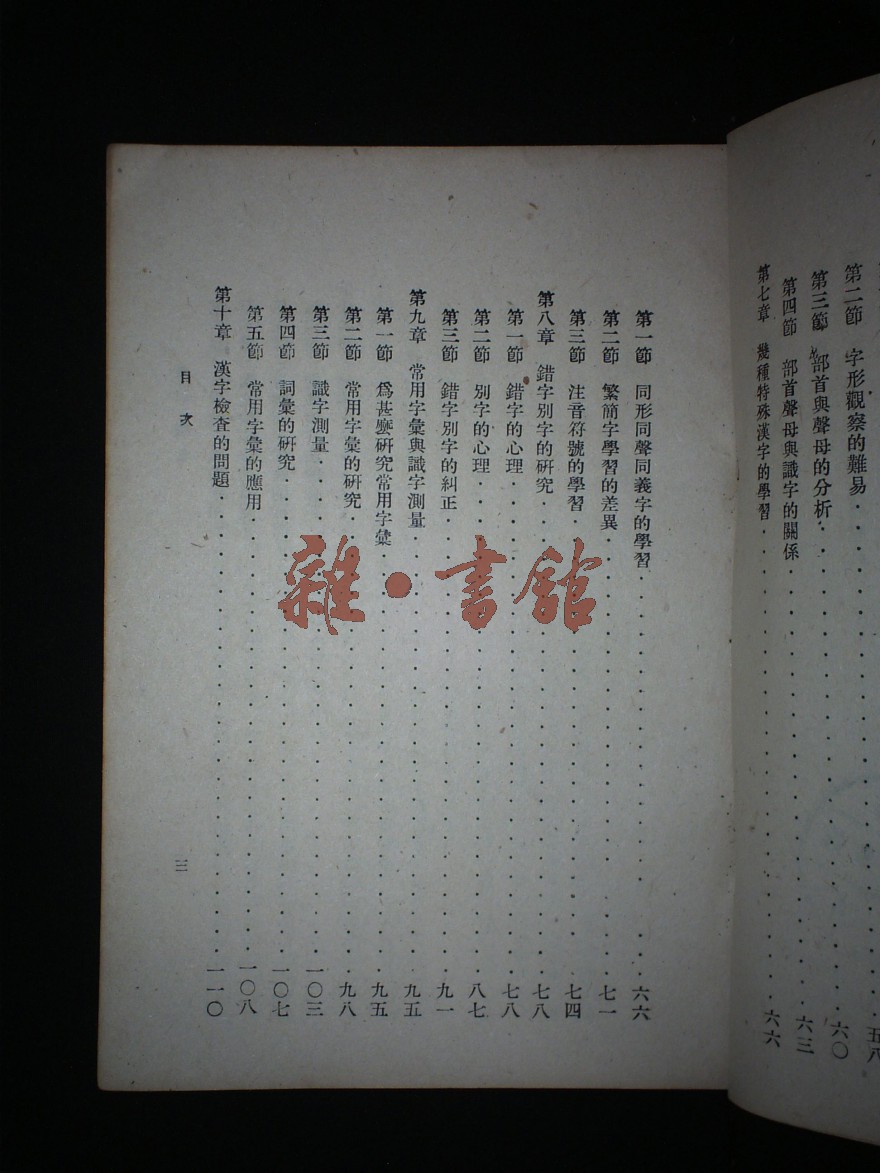 第二節　字形觀察的難易 五八
第三節　部首與聲母的分析 六〇
第四節　部首聲母與識字的關係 六三
第七章　幾種特殊漢字的學習 六六
第一節　同形同聲同義字的學習 六六
第二節　繁簡字學習的差異 七一
第三節　注音符號的學習 七四
第八章　錯字別字的研究 七八
第一節　錯字的心理 七八
第二節　別字的心理 八七
第三節　錯字別字的糾正 九一
第九章　常用字彙與識字測量 九五
第一節　爲甚麼研究常用字彙 九五
第二節　常用字彙的研究 九八
第三節　識字測量 一〇三
第四節　詞彙的研究 一〇七
第五節　常用字彙的應用 一〇八
第十章　漢字檢查的問題 一一〇
目次
三
雜·書館